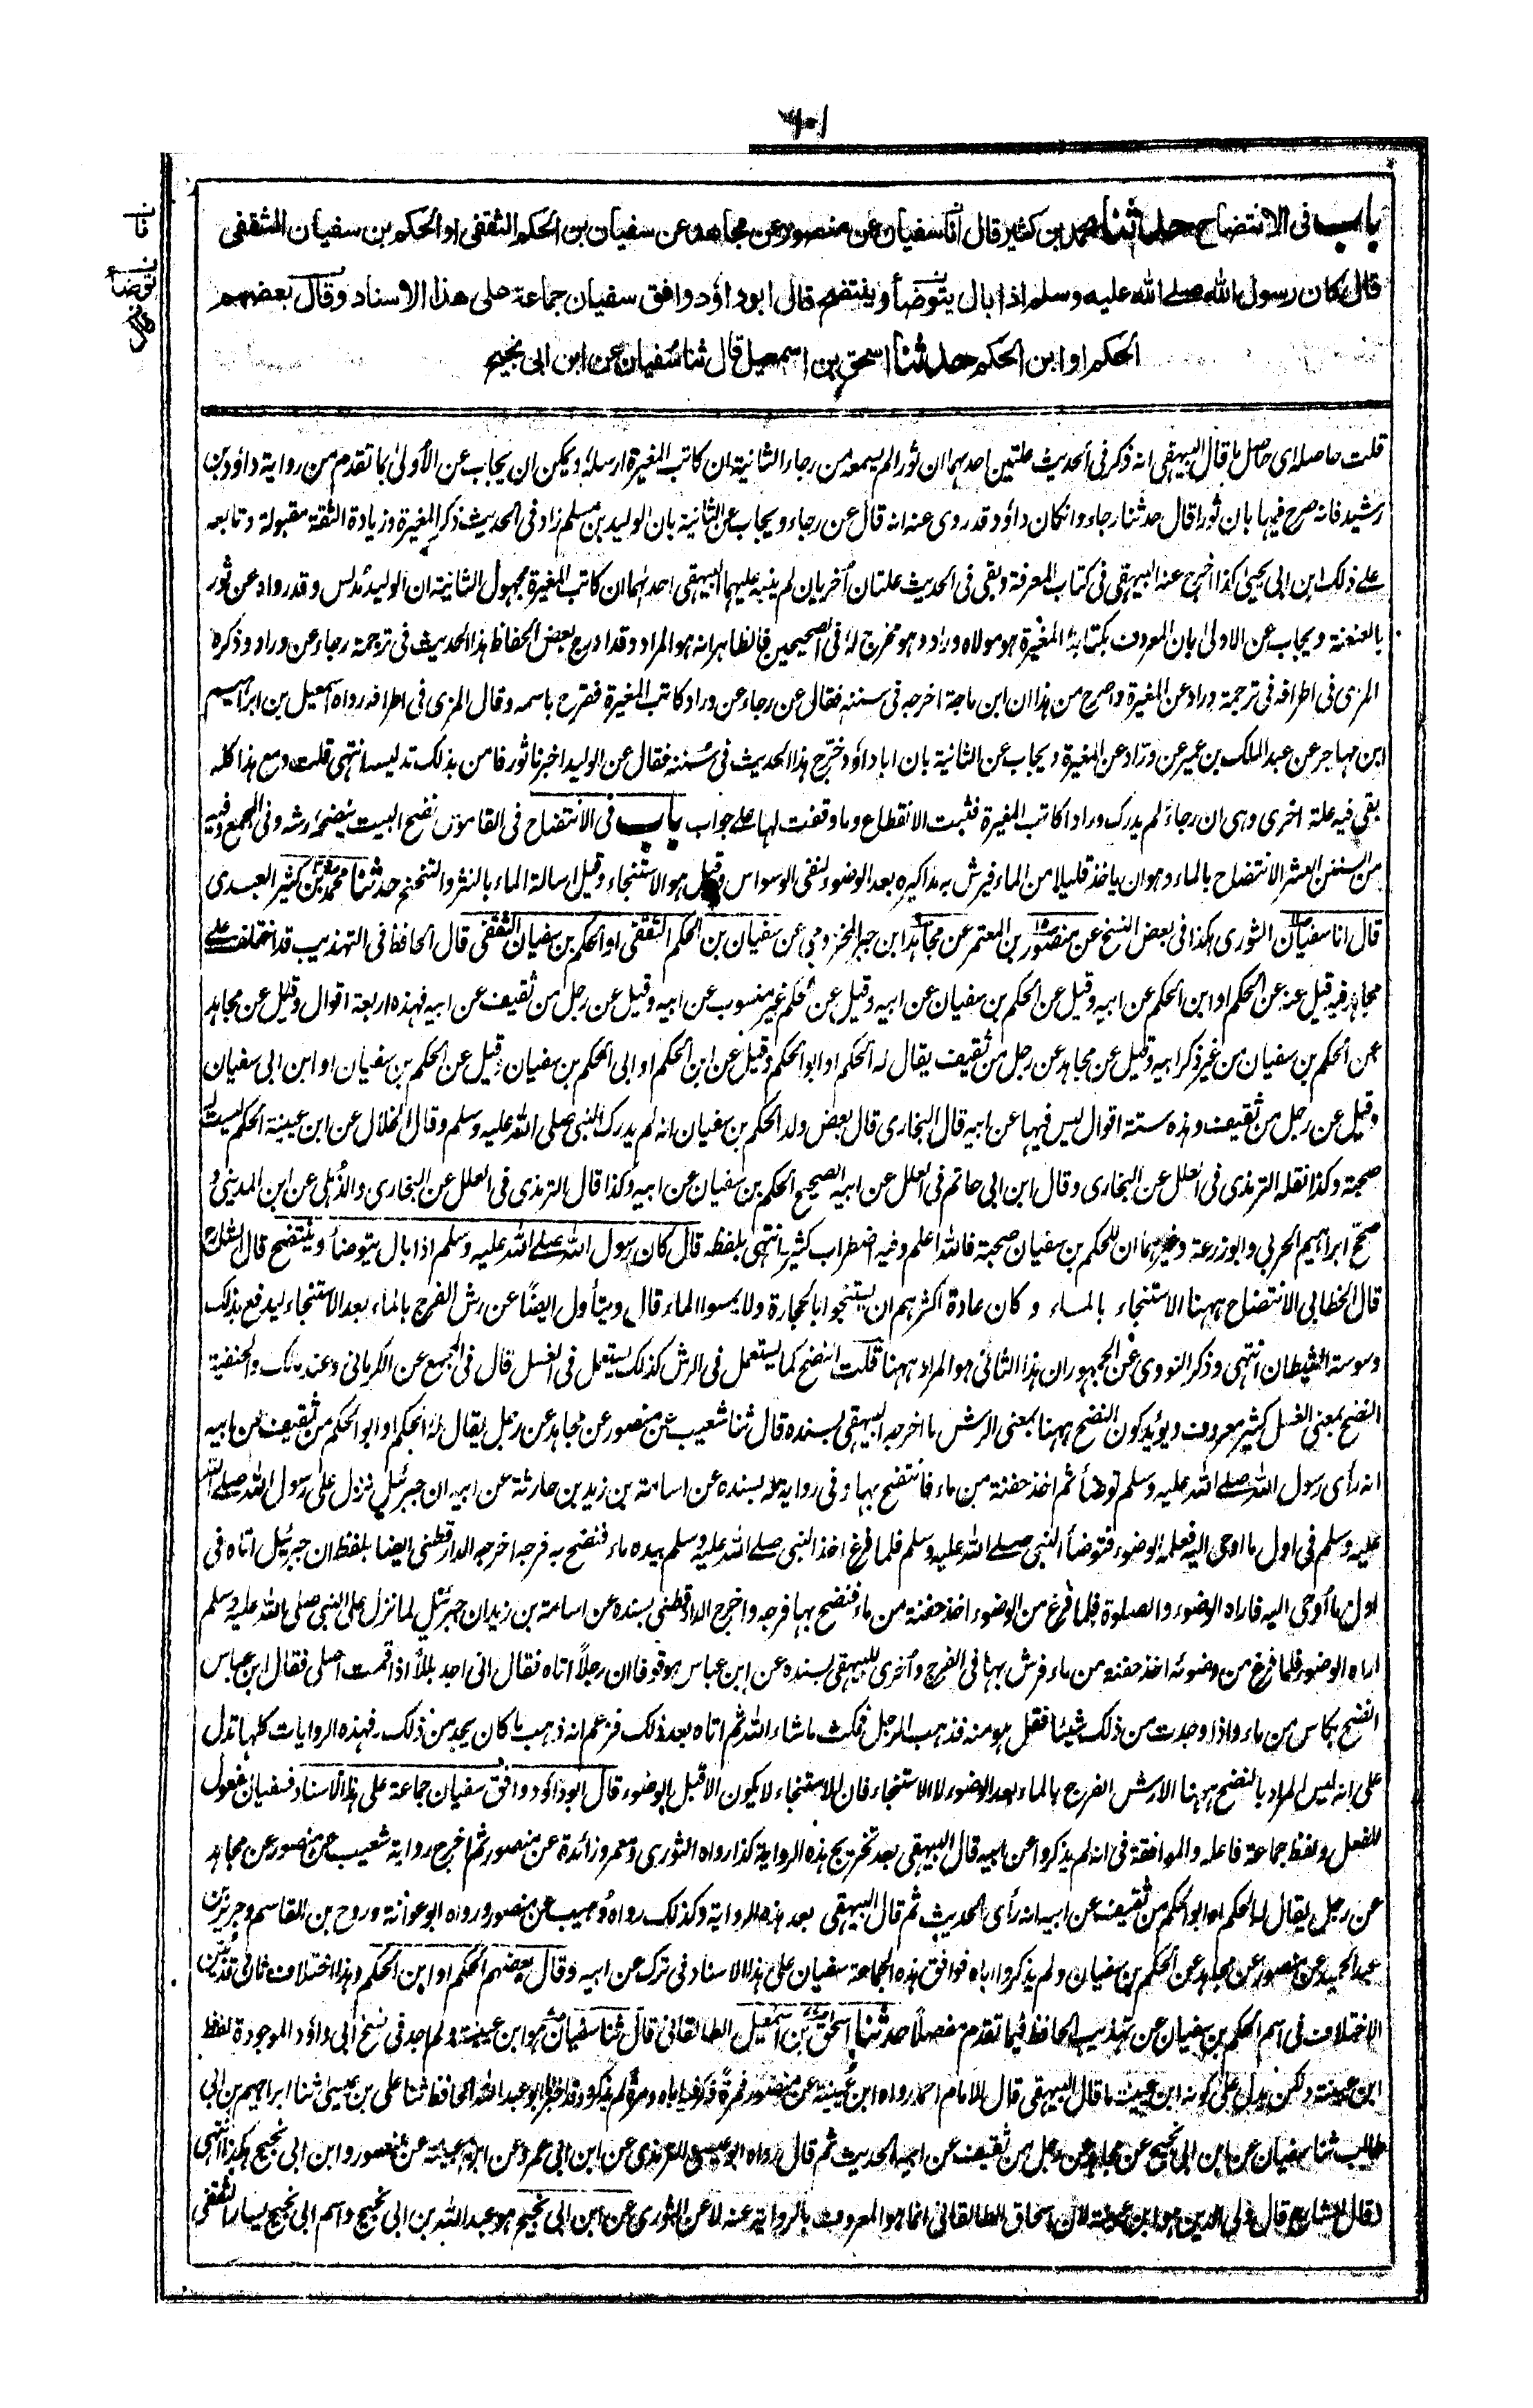 ١٠١
باب فى الانتضاح حدثنا محمد بن كثير قال أنا سفيان عن منصور عن مجاهد عن سفيان بن الحكم الثقفى او الحكم بن سفيان الثقفى
قال كان رسول الله صلى الله عليه وسلم اذا بال يتوضأ وينتضح قال ابو داؤد وافق سفيان جماعة على هذا الاسناد وقال بعضهم
الحكم او ابن الحكم حدثنا اسحق بن اسمعيل قال ثنا سفيان عن ابن ابى نجيح
قلت حاصله اى حاصل ما قال البيهقى انه ذكر فى الحديث علتين احدهما ان ثورا لم يسمعه من رجاء الثانية ان كاتب المغيرة ارسله ويمكن ان يجاب عن الأولى بما تقدم من رواية داؤد بن
رشيد فانه صرح فيها بان ثورا قال حدثنا رجاء وان كان داؤد قد روى عنه انه قال عن رجاء ويجاب عن الثانية بان الوليد بن مسلم زاد فى الحديث ذكر المغيرة وزيادة الثقة مقبولة وتابعه
على ذلك ابن ابى يحيى كذا أخرج عنه البيهقى فى كتاب المعرفة وبقى فى الحديث علتان أخريان لم ينبه عليهما البيهقى احداهما ان كاتب المغيرة مجهول الثانية ان الوليد مدلس وقد رواه عن ثور
بالعنعنة ويجاب عن الاولى بان المعروف بكتابة المغيرة هو مولاه وراد وهو مخرج له فى الصحيحين فالظاهر انه هو المراد وقد ادرج بعض الحفاظ هذا الحديث فى ترجمة رجاء عن وراد وذكره
المزى فى اطرافه فى ترجمة وراد عن المغيرة واصرح من هذا ان ابن ماجة اخرجه فى سننه فقال عن رجاء عن وراد كاتب المغيرة فصرح باسمه وقال المزى فى اطرافه رواه اسمعيل بن ابراهيم
ابن مهاجر عن عبد الملك بن عمير عن وراد عن المغيرة ويجاب عن الثانية بان ابا داؤد خرّج هذا الحديث فى سننه فقال عن الوليد اخبرنا ثور فامن بذلك تدليسه انتهى قلت ومع هذا كله
بقى فيه علة اخرى وهى ان رجاء لم يدرك ورادا كاتب المغيرة فثبت الانقطاع وما وقفت لها على جواب باب فى الانتضاح فى القاموس نضح البيت ينضحه رشه وفى المجمع وفيه
من السنن العشر الانتضاح بالماء وهو ان ياخذ قليلا من الماء فيرش به مذاكيره بعد الوضوء لنفى الوسواس وقيل هو الاستنجاء وقيل اسالة الماء بالنثر والتنحنح حدثنا محمد بن كثير العبدى
قال انا سفيان الثورى هكذا فى بعض النسخ عن منصور بن المعتمر عن مجاهد ابن جبر المخزومى عن سفيان بن الحكم الثقفى او الحكم بن سفيان الثقفى قال الحافظ فى التهذيب قد اختلف على
مجاهد فيه قيل عنه عن الحكم او ابن الحكم عن ابيه وقيل عن الحكم بن سفيان عن ابيه وقيل عن الحكم غير منسوب عن ابيه وقيل عن رجل من ثقيف عن ابيه فهذه اربعة اقوال وقيل عن مجاهد
عن الحكم بن سفيان من غير ذكر ابيه وقيل عن مجاهد عن رجل من ثقيف يقال له الحكم او ابو الحكم وقيل عن ابن الحكم او ابى الحكم بن سفيان وقيل عن الحكم بن سفيان او ابن ابى سفيان
وقيل عن رجل من ثقيف وهذه ستة اقوال ليس فيها عن ابيه قال البخارى قال بعض ولد الحكم بن سفيان انه لم يدرك النبى صلى الله عليه وسلم وقال الخلال عن ابن عيينة الحكم ليست له
صحبة وكذا نقله الترمذى فى العلل عن البخارى وقال ابن ابى حاتم فى العلل عن ابيه الصحيح الحكم بن سفيان عن ابيه وكذا قال الترمذى فى العلل عن البخارى والذهلى عن ابن المدينى و
صحّح ابراهيم الحربى وابو زرعة وغيرهما ان للحكم بن سفيان صحبة فالله اعلم وفيه اضطراب كثير انتهى بلفظه قال كان رسول الله صلى الله عليه وسلم اذا بال يتوضأ وينتضح قال الشارح
قال الخطابى الانتضاح ههنا الاستنجاء بالماء وكان عادة اكثرهم ان يستنجوا بالحجارة ولا يمسوا الماء قال ويتأول ايضا عن رش الفرج بالماء بعد الاستنجاء ليدفع بذلك
وسوسة الشيطان انتهى وذكر النووى عن الجمهور ان هذا الثانى هو المراد ههنا قلت النضح كما يستعمل فى الرش كذلك يستعمل فى الغسل قال فى المجمع عن الكرمانى وعند مالك والحنفية
النضح بمعنى الغسل كثير معروف ويؤيد كون النضح ههنا بمعنى الرش ما اخرجه البيهقى بسنده قال ثنا شعيب عن منصور عن مجاهد عن رجل يقال له الحكم او ابو الحكم من ثقيف عن ابيه
انه رأى رسول الله صلى الله عليه وسلم توضأ ثم اخذ حفنة من ماء فانتضح بها وفى رواية له بسنده عن اسامة بن زيد بن حارثة عن ابيه ان جبرئيل نزل على رسول الله صلى الله
عليه وسلم فى اول ما اوحى اليه فعلمه الوضوء فتوضأ النبى صلى الله عليه وسلم فلما فرغ اخذ النبى صلى الله عليه وسلم بيده ماء فنضح به فرجه اخرجه الدارقطنى ايضا بلفظ ان جبرئيل اتاه فى
اول ما أوحى اليه فاراه الوضوء والصلوة فلما فرغ من الوضوء اخذ حفنة من ماء فنضح بها فرجه واخرج الدارقطنى بسنده عن اسامة بن زيد ان جبرئيل لما نزل على النبى صلى الله عليه وسلم
اراه الوضوء فلما فرغ من وضوئه اخذ حفنة من ماء فرش بها فى الفرج وأخرى للبيهقى بسنده عن ابن عباس موقوفا ان رجلاً اتاه فقال انى اجد بللاً اذا قمت اصلى فقال ابن عباس
انضح بكاس من ماء واذا وجدت من ذلك شيئا فقل هو منه فذهب الرجل فمكث ما شاء الله ثم اتاه بعد ذلك فزعم انه ذهب ما كان يجد من ذلك فهذه الروايات كلها تدل
على انه ليس المراد بالنضح ههنا الا رش الفرج بالماء بعد الوضوء لا الاستنجاء فان الاستنجاء لا يكون الا قبل الوضوء قال ابو داؤد وافق سفيان جماعة على هذا الاسناد فسفيان مفعول
للفعل ولفظ جماعة فاعله والموافقة فى انه لم يذكروا عن ابيه قال البيهقى بعد تخريج هذه الرواية كذا رواه الثورى ومعمر وزائدة عن منصور ثم اخرج رواية شعيب عن منصور عن مجاهد
عن رجل يقال له الحكم او ابو الحكم من ثقيف عن ابيه انه رأى الحديث ثم قال البيهقى بعد هذه الرواية وكذلك رواه وُهيب عن منصور ورواه ابو عوانة وروح بن القاسم وجرير بن
عبد الحميد عن منصور عن مجاهد عن الحكم بن سفيان ولم يذكروا اباه فوافق هذه الجماعة سفيان على هذا الاسناد فى ترك عن ابيه وقال بعضهم الحكم او ابن الحكم وهذا اختلاف ثانى قد بين
الاختلاف فى اسم الحكم بن سفيان عن تهذيب الحافظ فيما تقدم مفصلاً حدثنا إسحق بن اسمعيل الطالقانى قال ثنا سفيان هو ابن عيينة ولم اجد فى نسخ ابى داؤد الموجودة لفظ
ابن عيينة ولكن يدل على كونه ابن عيينة ما قال البيهقى قال الامام احمد رواه ابن عيينة عن منصور فمرة ذكر فيه اباه ومرة لم يذكره وقد اخبرنا ابو عبد الله الحافظ ثنا على بن عيسى ثنا ابراهيم بن ابى
طالب ثنا سفيان عن ابن ابى نجيح عن مجاهد عن رجل من ثقيف عن ابيه الحديث ثم قال رواه ابو عيسى الترمذى عن ابن ابى عمر وعن ابن عيينة عن منصور وابن ابى نجيح هكذا انتهى
وقال الشارح قال ولى الدين هو ابن عيينة لان اسحاق الطالقانى انما هو المعروف بالرواية عنه لا عن الثورى عن ابن ابى نجيح هو عبد الله بن ابى نجيح واسم ابى نجيح يسار الثقفى